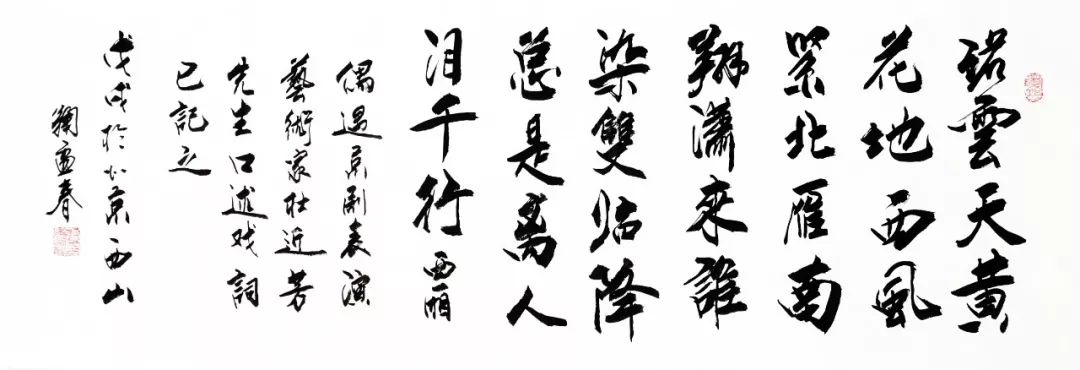 碧雲天黃
花地西風
緊北雁南
翔瀟來誰
染雙降
总是离人
泪千行 西厢
偶遇京剧表演
藝術家杜近芳
先生口述戏詞
已記之
戊戌於北京西山
鞠春